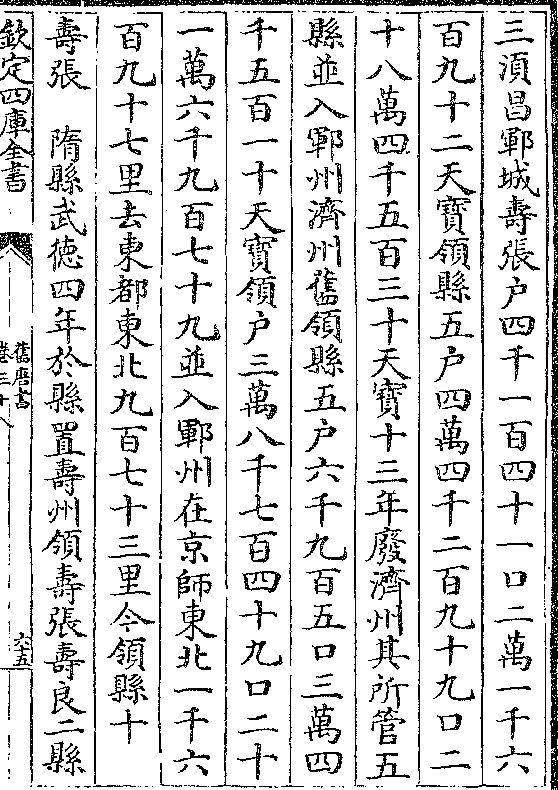 三湏昌鄆城壽張户四千一百四十一口二萬一千六
百九十二天寶領縣五户四萬四千二百九十九口二
十八萬四千五百三十天寶十三年廢濟州其所管五
縣並入鄆州濟州舊領縣五户六千九百五口三萬四
千五百一十天寶領户三萬八千七百四十九口二十
一萬六千九百七十九並入鄆州在京師東北一千六
百九十七里去東都東北九百七十三里今領縣十
壽張　隋縣武徳四年於縣置壽州領壽張壽良二縣
欽定四庫全書
舊唐書
卷三十八
六十五